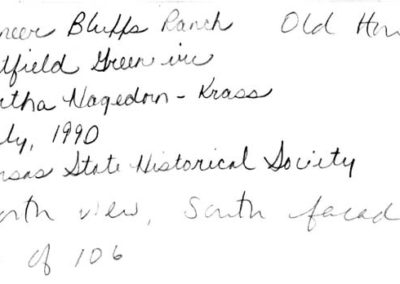 neer Bluffs Ranch Old Hou
tfield Green vic
rtha Hagedorn-Krass
ly, 1990
nsas State Historical Society
orth view, South facad
of 106